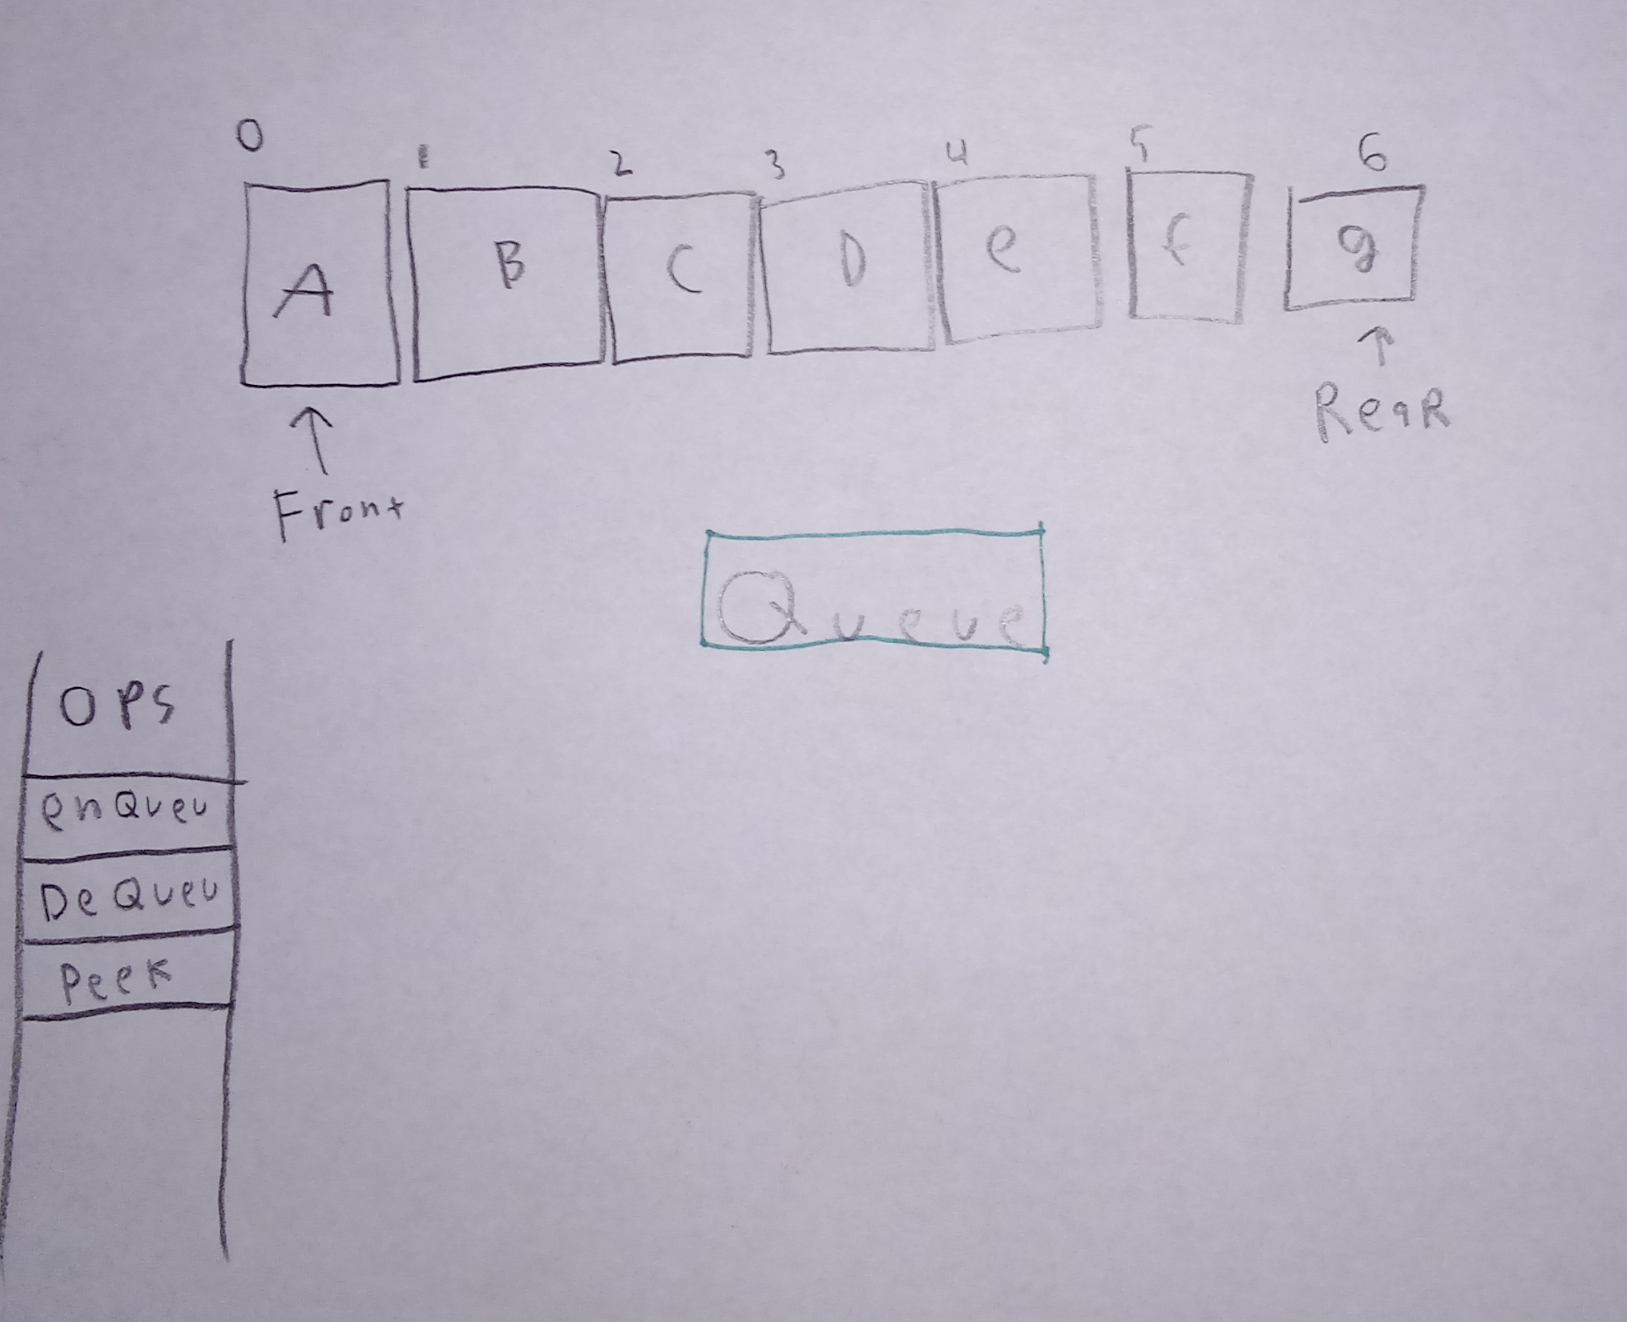 0 1 2 3 4 5 6
A B C D e f g
Front
ReaR
Queue
OPS
enQueu
DeQueu
Peek